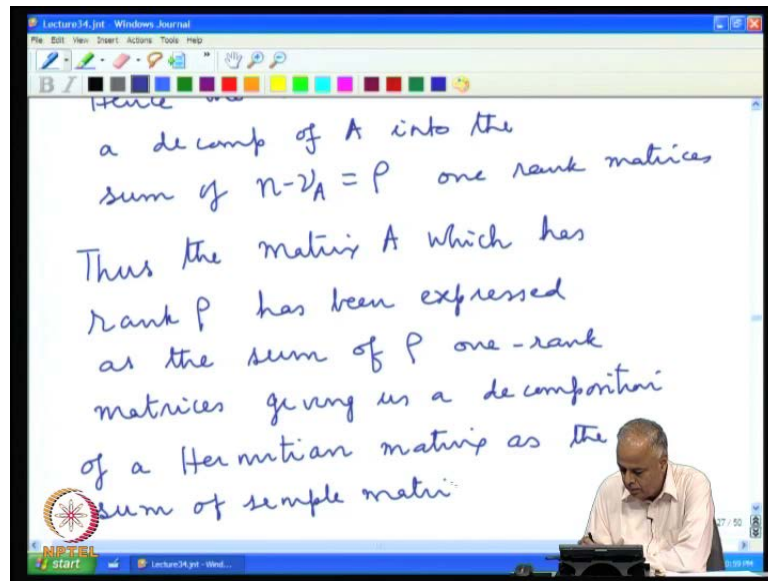 Lecture34.jnt - Windows Journal
File Edit View Insert Actions Tools Help
B I
Hence
a decomp of A into the
sum of n-ν_A = ρ one rank matrices
Thus the matrix A which has
rank ρ has been expressed
as the sum of ρ one-rank
matrices giving us a decomposition
of a Hermitian matrix as the
sum of semple matri
27 / 50
NPTEL
start Lecture34.jnt - Wind...